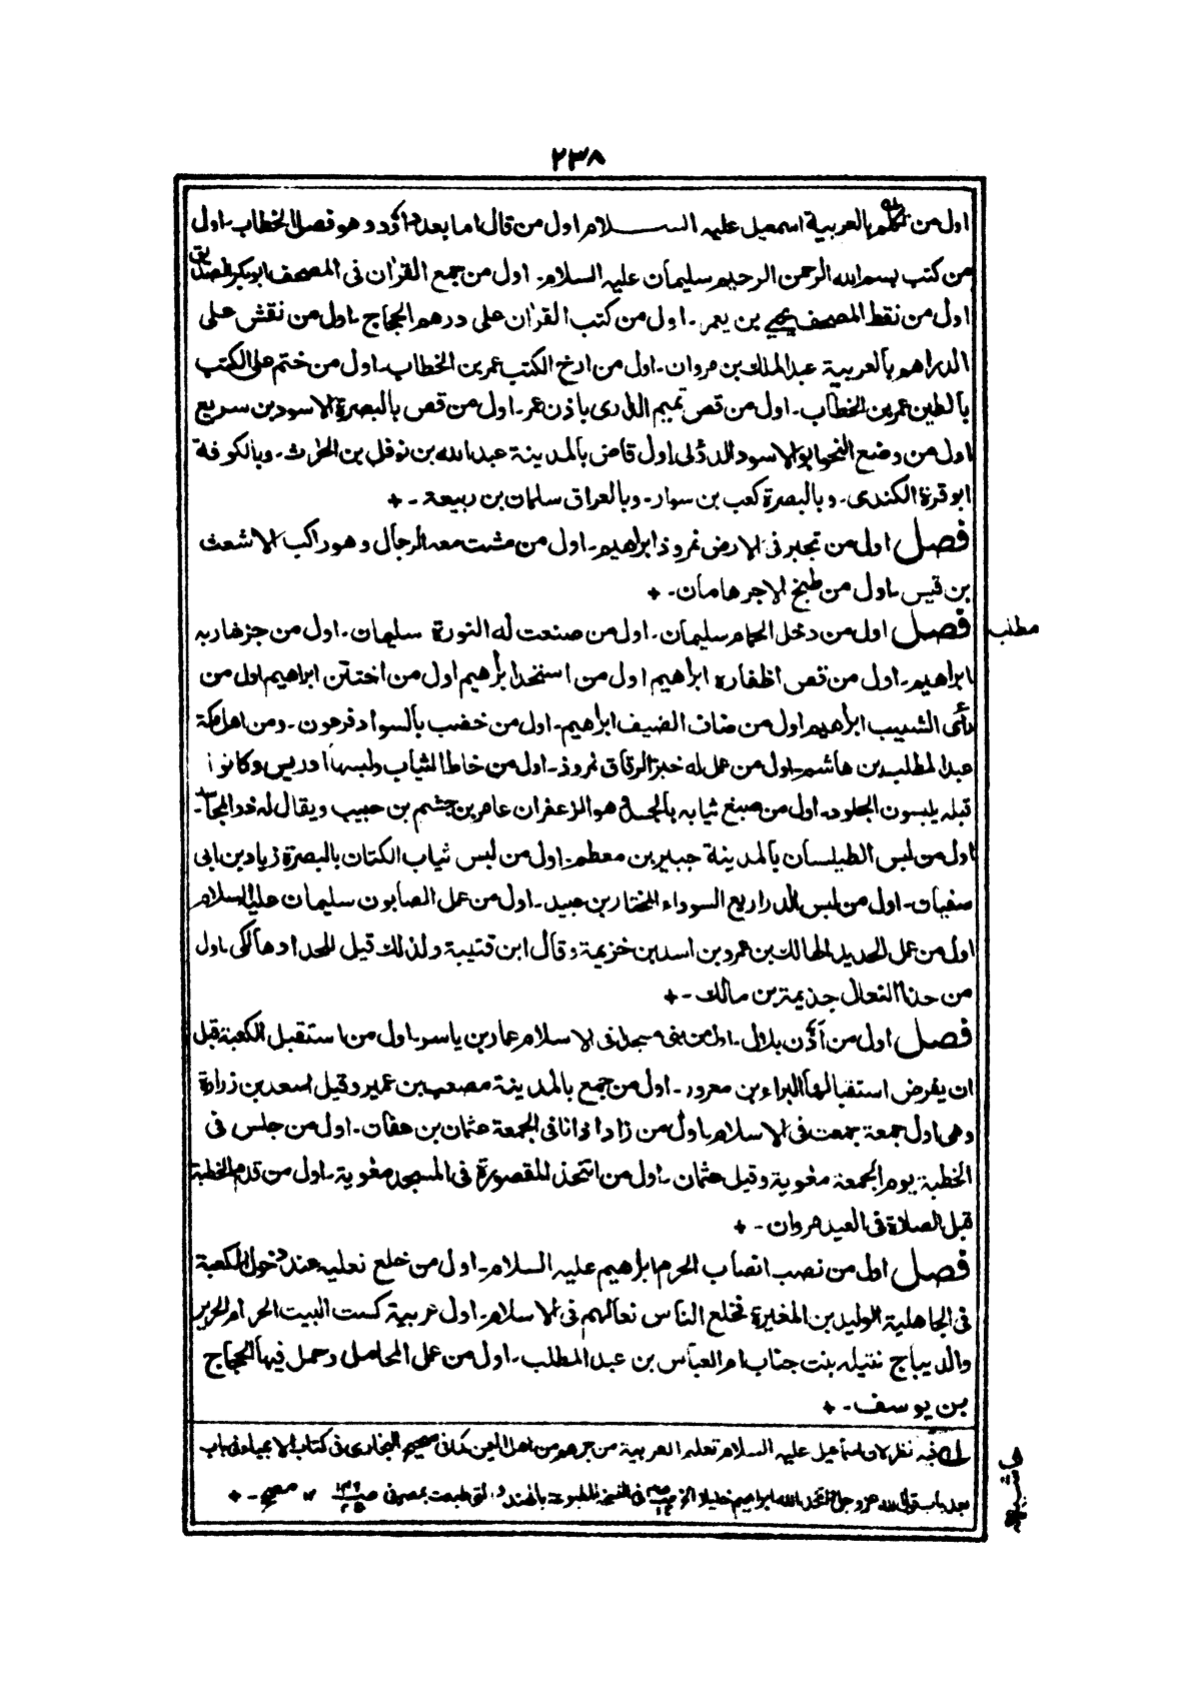 ٢٣٨
اول من تكلم بالعربية اسمعيل عليه الســلام اول من قال اما بعد داؤد وهو فصل الخطاب۔ اول
من كتب بسم الله الرحمن الرحيم سليمان عليه السلام۔ اول من جمع القران فى المصحف ابوبكر الصديق
اول من نقط المصحف يحيى بن يعمر۔ اول من كتب القران على درهم الحجاج۔ اول من نقش على
الدراهم بالعربية عبد الملك بن مروان۔ اول من ارخ الكتب عمر بن الخطاب۔ اول من ختم على الكتب
بالطين عمر بن الخطاب۔ اول من قص تميم الدارى باذن عمر۔ اول من قص بالبصرة الاسود بن سريع
اول من وضع النحو ابو الاسود الدؤلى اول قاض بالمدينة عبد الله بن نوفل بن الحرث۔ وبالكوفة
ابو قرة الكندى۔ وبالبصرة كعب بن سوار۔ وبالعراق سلمان بن ربيعة۔ +
فصل اول من تجبر فى الارض نمروذ ابراهيم۔ اول من مشت معه الرجال وهو راكب الاشعث
بن قيس۔ اول من طبخ الاجر هامان۔ +
فصل اول من دخل الحمام سليمان۔ اول من صنعت له النورة سليمان۔ اول من جز شاربه
مطلب
ابراهيم۔ اول من قص اظفاره ابراهيم اول من استحد ابراهيم اول من اختتن ابراهيم اول من
رأى الشيب ابراهيم اول من ضاف الضيف ابراهيم۔ اول من خضب بالسواد فرعون۔ ومن اهل مكة
عبد المطلب بن هاشم۔ اول من عمل له خبز الرقاق نمروذ۔ اول من خاط الثياب ولبسها ادريس وكانوا
قبله يلبسون الجلود۔ اول من صبغ ثيابه هو الزعفران عامر بن جشم بن حبيب ويقال له
اول من لبس الطيلسان بالمدينة جبير بن معطم۔ اول من لبس ثياب الكتان بالبصرة زياد بن ابى
سفيان۔ اول من لبس الدراريع السوداء المختار بن عبيد۔ اول من عمل الصابون سليمان عليه السلام
اول من عمل الحديد الهالك بن عمرو بن اسد بن خزيمة وقال ابن قتيبة ولذلك قيل للحداد هالكى۔ اول
من حذا النعال جذيمة بن مالك۔ +
فصل اول من أذن بلال۔ اول من بنى مسجدا فى الاسلام عمار بن ياسر۔ اول من استقبل الكعبة قبل
ان يفرض استقبالها البراء بن معرور۔ اول من جمع بالمدينة مصعب بن عمير وقيل اسعد بن زرارة
وهى اول جمعة جمعت فى الاسلام۔ اول من زاد اذانا فى الجمعة عثمان بن عفان۔ اول من جلس فى
الخطبة يوم الجمعة معوية وقيل عثمان۔ اول من اتخذ المقصورة فى المسجد معوية۔ اول من قدم الخطبة
قبل الصلاة فى العيد مروان۔ +
فصل اول من نصب انصاب الحرم ابراهيم عليه السلام۔ اول من خلع نعليه عند دخول الكعبة
فى الجاهلية الوليد بن المغيرة فخلع الناس نعالهم فى الاسلام۔ اول عربية كست البيت الحرام الحرير
والديباج نتيله بنت جناب ام العباس بن عبد المطلب۔ اول من عمل المحامل وحمل فيها الحجاج
بن يوسف۔ +
فيه نظر لان اسماعيل عليه السلام تعلم العربية من جرهم من اهل اليمن كما فى صحيح البخارى فى كتاب الانبياء فى باب
بعد باب قول الله عز وجل واتخذ الله ابراهيم خليلا الخ فى النسخة المطبوعة بالهند والتى طبعت بمصر فى ١٢ مصحح۔ +